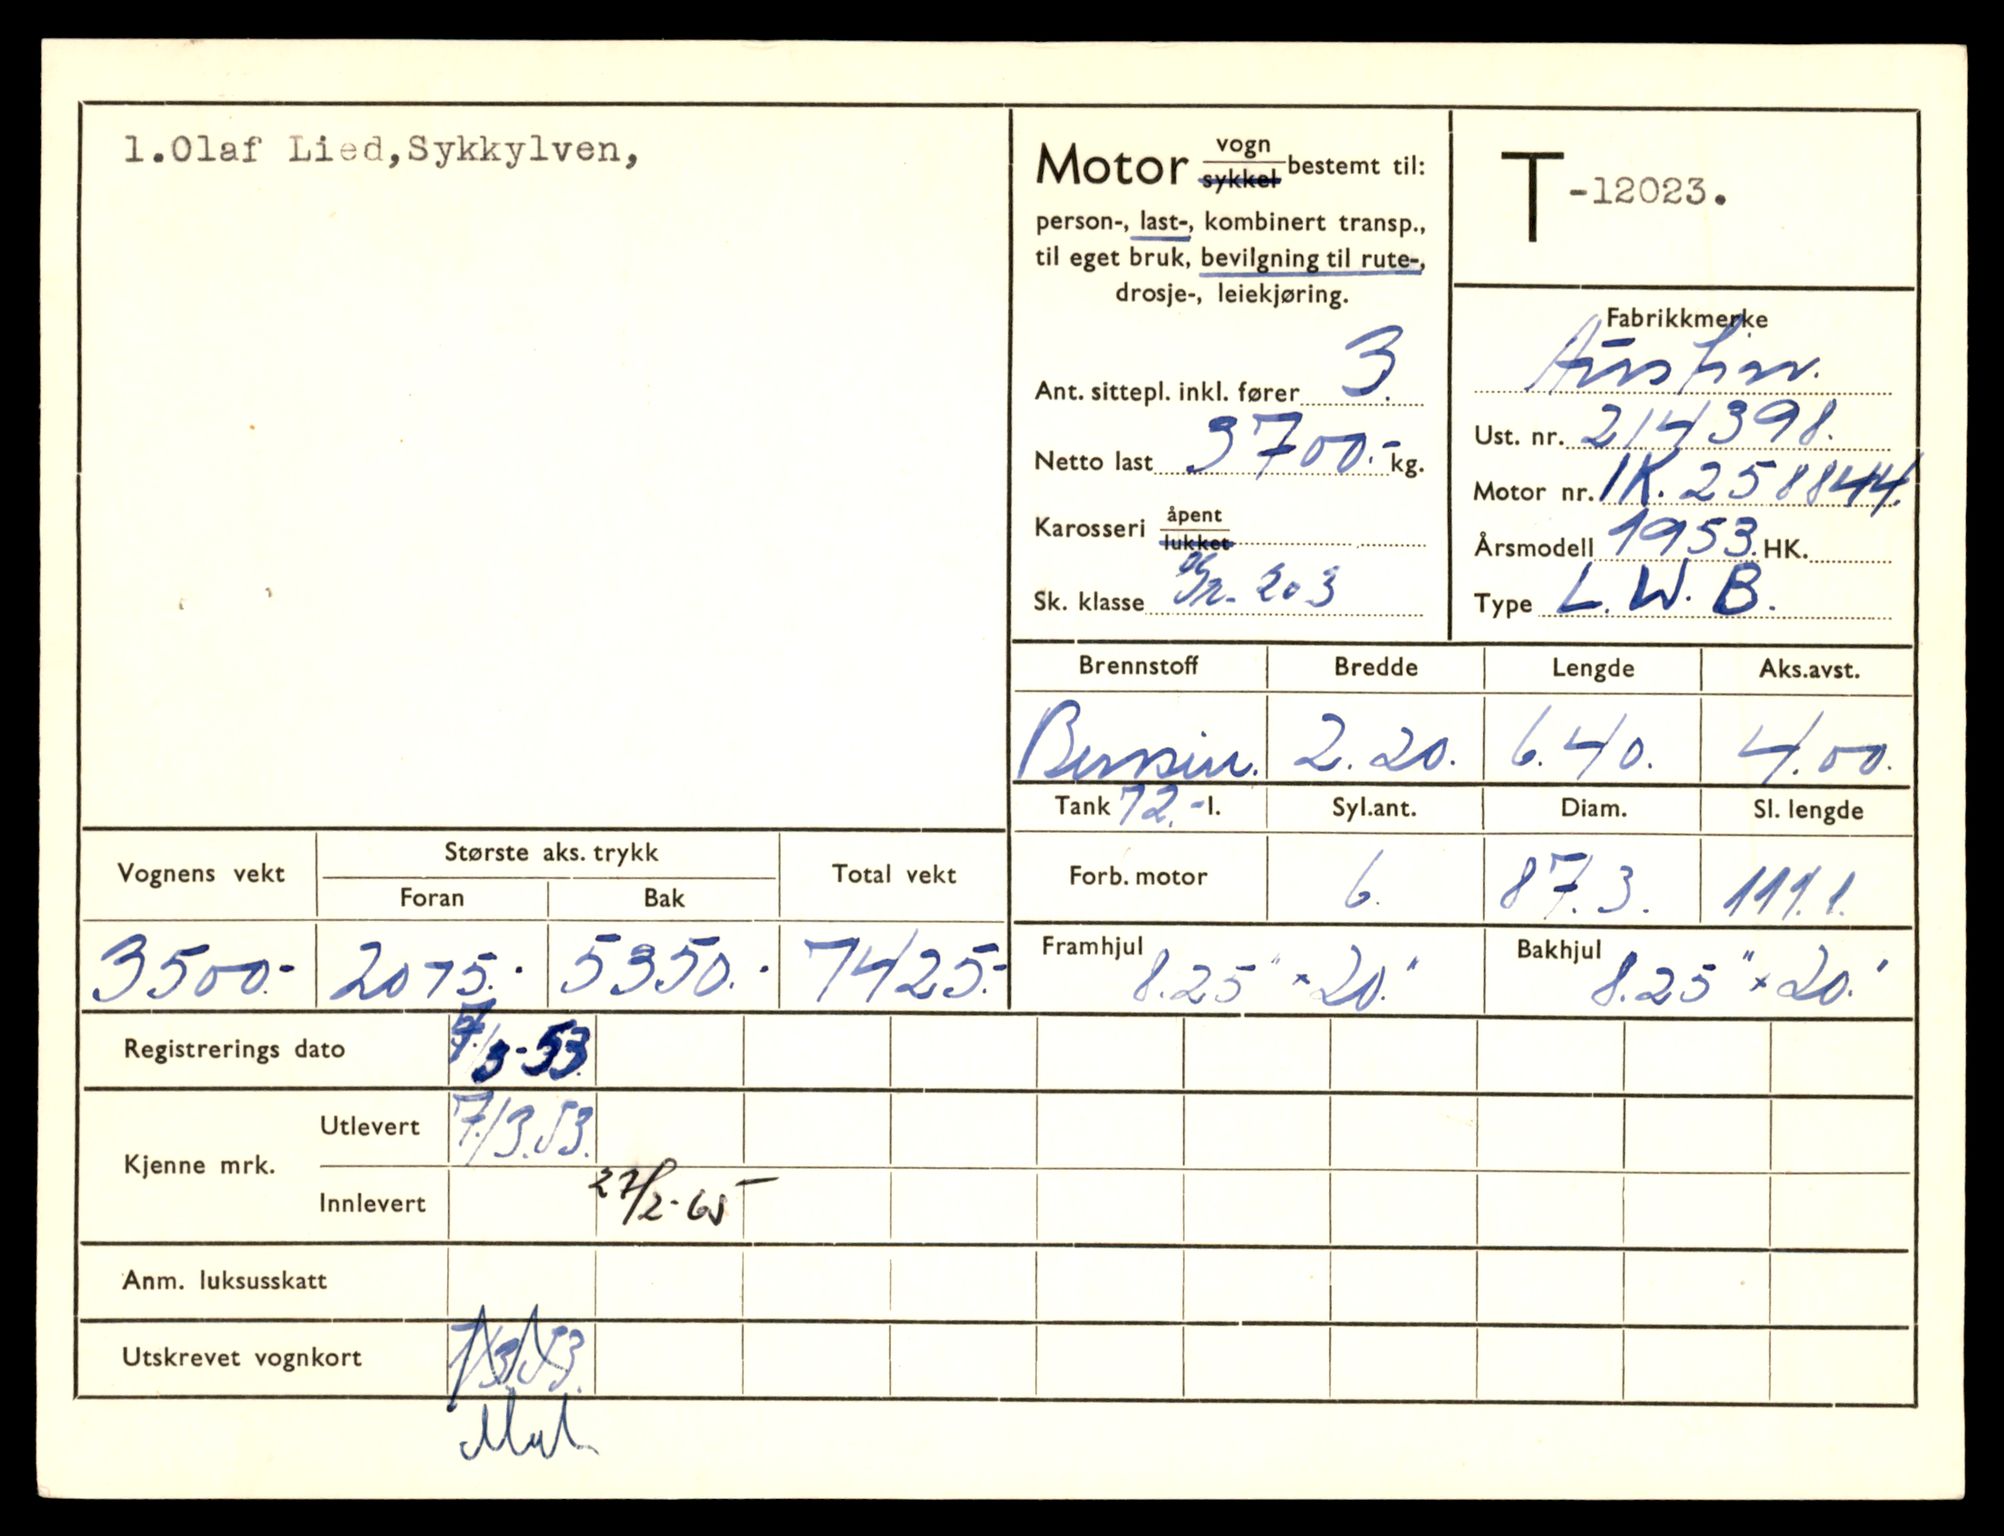 1.Olaf Lied,Sykkylven,
Motor vogn sykkel bestemt til:
person-, last-, kombinert transp.,
til eget bruk, bevilgning til rute-,
drosje-, leiekjøring.
Ant. sittepl. inkl. fører 3.
Netto last 3700.- kg.
Karosseri åpent lukket
Sk. klasse 203
T -12023.
Fabrikkmerke
Austin.
Ust. nr. 214398.
Motor nr. 1K. 258844.
Årsmodell 1953. HK.
Type L. W. B.
Brennstoff Bredde Lengde Aks.avst.
Bensin. 2.20. 6.40. 4.00.
Tank 72.- l. Syl.ant. Diam. Sl. lengde
Forb. motor 6. 87.3. 111.1.
Framhjul 8.25" x 20." Bakhjul 8.25" x 20."
Vognens vekt Største aks. trykk Total vekt
Foran Bak
3500.- 2075.- 5350.- 7425.-
Registrerings dato 7/3-53.
Kjenne mrk. Utlevert 7/3.53.
Innlevert 27/2-65
Anm. luksusskatt
Utskrevet vognkort 7/3.53.